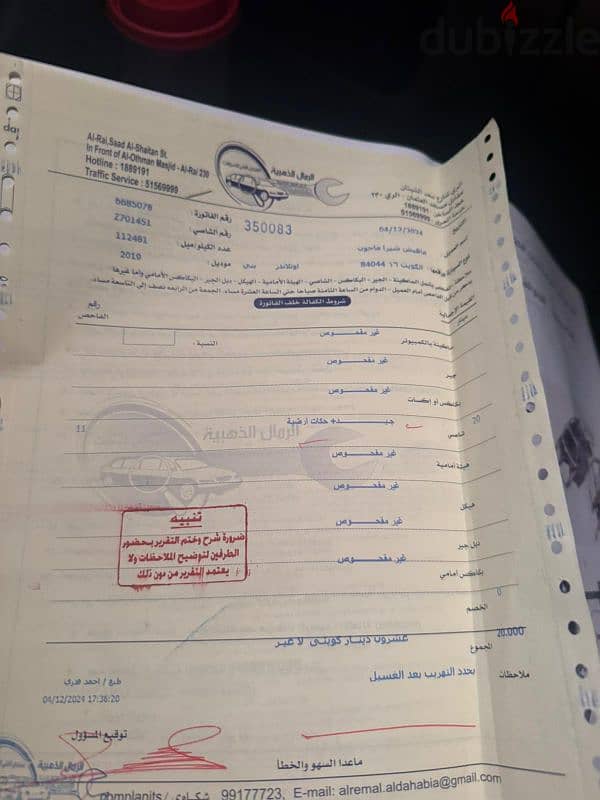 dubizzle
Al-Rai,Saad Al-Shaitan St.
In Front of Al-Othman Masjid - Al-Rai 230
Hotline : 1889191
Traffic Service : 51569999
الرمال الذهبية
1889191
51569999
350083
04/12/2024
رقم الفاتورة : 6685078
رقم الشاسي : 2701451
عدد الكيلو/ميل : 112481
موديل : 2010
الكويت ١٦ 84044
اوتلاندر
شروط الكفالة خلف الفاتورة
رقم الفاحص
النسبة :
ماكينة بالكمبيوتر غير مفحوص
جير غير مفحوص
غير مفحوص
شاصي 20 جيد+ حكات ارضية 11
هيئة امامية غير مفحوص
هيكل غير مفحوص
دبل جير غير مفحوص
بكاكس امامي غير مفحوص
الرمال الذهبية
تنبيه
ضرورة شرح وختم التقرير بحضور
الطرفين لتوضيح الملاحظات ولا
يعتمد التقرير من دون ذلك
0
الخصم
20.000
المجموع عشرون دينار كويتي لا غير
ملاحظات يحدد التهريب بعد الغسيل
طبع / احمد فدري
04/12/2024 17:36:20
توقيع المسؤول
ماعدا السهو والخطأ
الرمال الذهبية
شكاوى / 99177723, E-mail: alremal.aldahabia@gmail.com